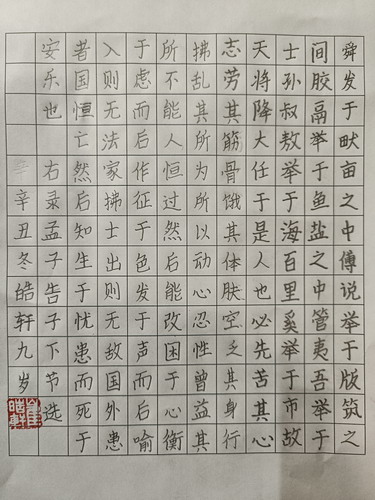 舜发于畎亩之中傅说举于版筑之
间胶鬲举于鱼盐之中管夷吾举于
士孙叔敖举于海百里奚举于市故
天将降大任于是人也必先苦其心
志劳其筋骨饿其体肤空乏其身行
拂乱其所为所以动心忍性曾益其
所不能人恒过然后能改困于心衡
于虑而后作征于色发于声而后喻
入则无法家拂士出则无敌国外患
者国恒亡然后知生于忧患而死于
安乐也 右录孟子告子下节选
辛丑冬皓轩九岁